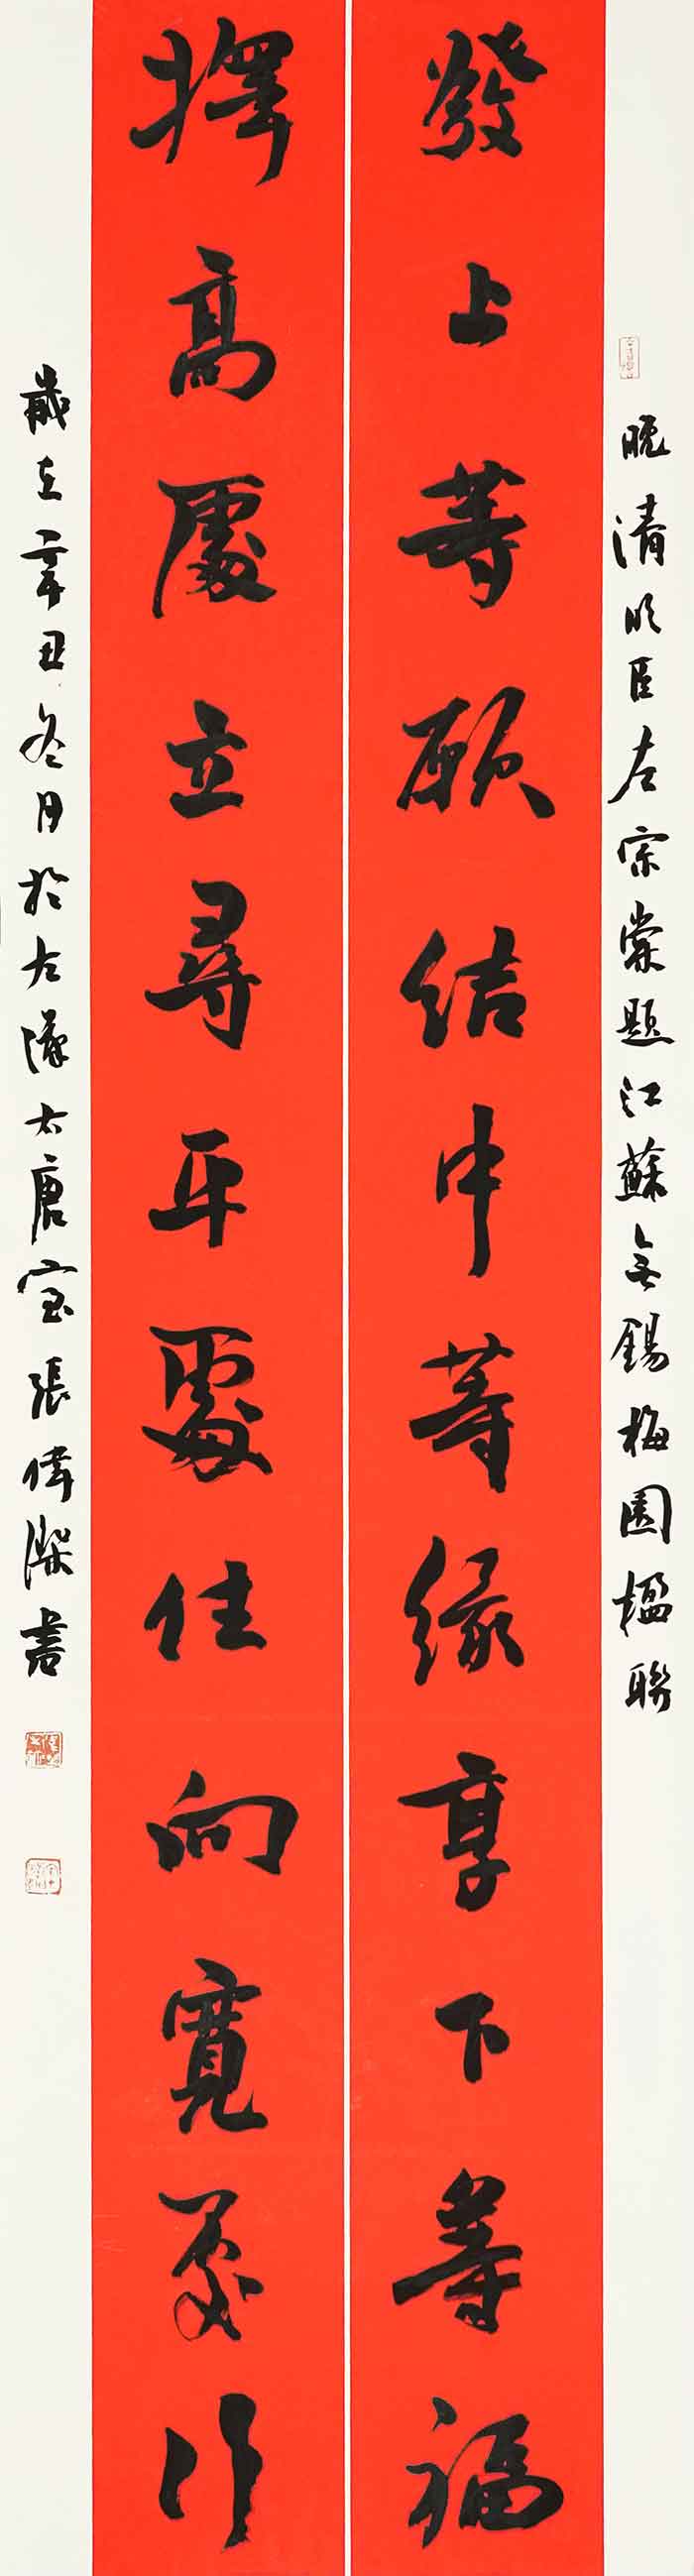 晚清明臣左宗棠題江蘇無錫梅園楹聯
發上等願結中等緣享下等福
擇高處立尋平處住向寬處行
歲在辛丑冬月於大唐室張偉傑書